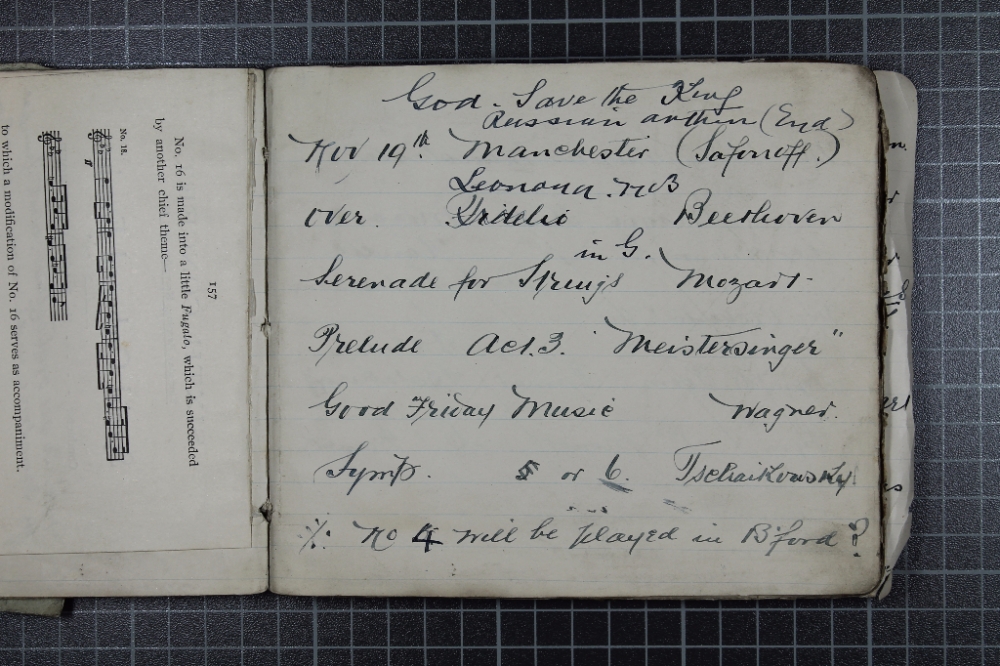 157
No. 16 is made into a little Fugato, which is succeeded
by another chief theme—
No. 18.
ff
to which a modification of No. 16 serves as accompaniment.
God. Save the King
Russian anthem (End)
Nov 19th Manchester (Safonoff.)
Leonora. No3
Over. Fidelio Beethoven
in G.
Serenade for Strings Mozart
Prelude Act. 3. "Meistersinger"
Good Friday Music Wagner.
Symp. 5 or 6. Tschaikowsky
No 4 will be played in B'ford?